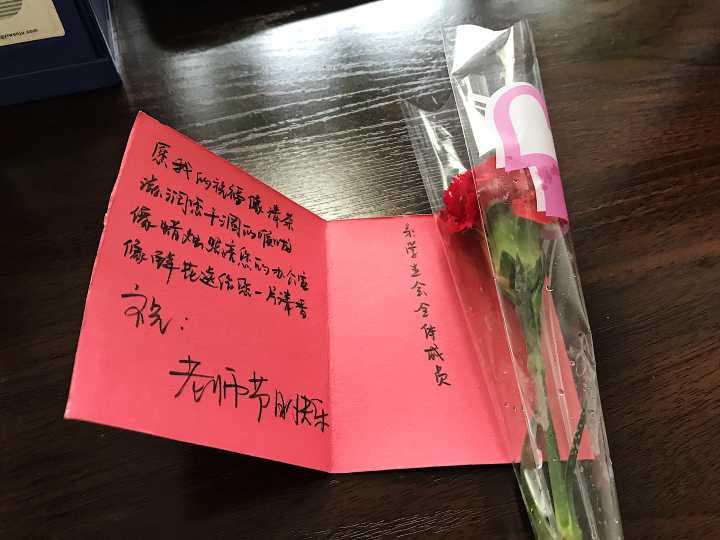 愿我的祝福像清茶
滋润您干涸的喉咙
像蜡烛照亮您的办公室
像鲜花送给您一片清香
祝：
老师节日快乐
学生会全体成员